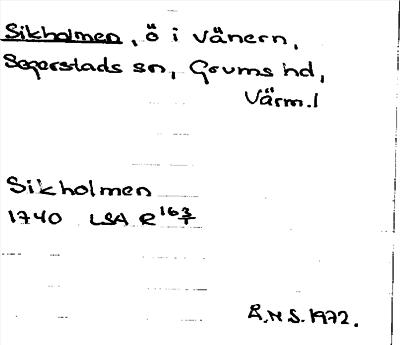 Sikholmen, ö i Vänern,
Segerstads sn, Grums hd,
Värm.l
Sikholmen
1740 LSA R 163/1
Å.H S. 1972.